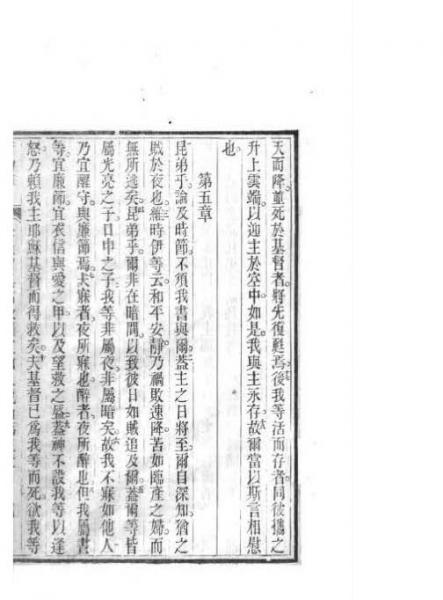 天而降。蓋死於基督者。將先復甦焉。後我等活而存者。同彼攜之
升上雲端。以迎主於空中。如是。我與主永存。故爾當以斯言相慰
也。
第五章
昆弟乎。論及時節。不須我書與爾。蓋主之日將至。爾自深知。猶之
賊於夜也。維時伊等云。和平安靜。乃禍敗速降。苦如臨產之婦。而
無所逃矣。昆弟乎。爾非在暗間。以致彼日如賊追及爾。蓋爾等皆
屬光亮之子。日中之子。我等非屬夜。非屬暗矣。故我不寐如他人。
乃宜醒守。與廉節焉。夫寐者。夜所寐也。醉者。夜所醉也。但我屬晝
等宜廉節。宜衣信與愛之甲。以及望救之盔。蓋神不設我等以逢
怒。乃賴我主耶穌基督而得救矣。夫基督已為我等而死。欲我等